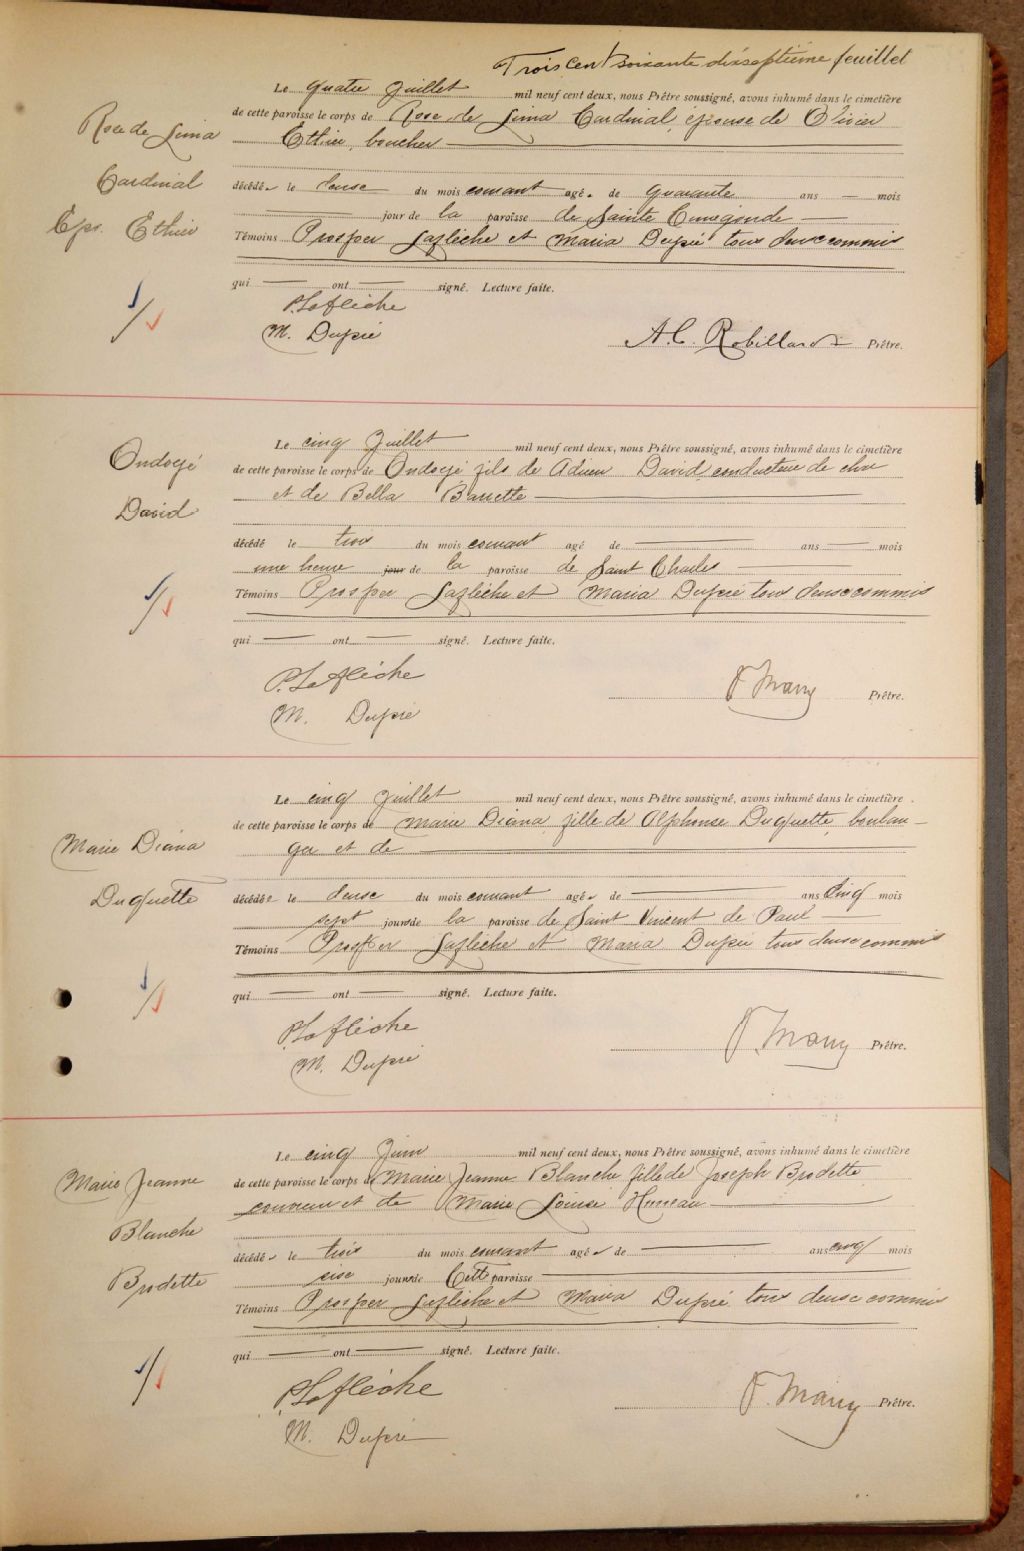 Trois cent soixante dixseptième feuillet
Rose de Lima
Cardinal
Eps. Ethier
Le quatre Juillet mil neuf cent deux, nous Prêtre soussigné, avons inhumé dans le cimetière
de cette paroisse le corps de Rose de Lima Cardinal, épouse de Olivier
Ethier, boucher
décédée le deux du mois courant agée de quarante ans mois
jour de la paroisse de Sainte Cunégonde
Témoins Prosper Laflèche et Maria Dupré tous deux commis
qui ont signé. Lecture faite.
P. Laflèche
M. Dupré
A. C. Robillard Prêtre.
Ondoyé
David
Le cinq Juillet mil neuf cent deux, nous Prêtre soussigné, avons inhumé dans le cimetière
de cette paroisse le corps de Ondoyé fils de David, conducteur de
et de Bella
décédé le trois du mois courant agé de ans mois
une heure jour de la paroisse de Saint Charles
Témoins Prosper Laflèche et Maria Dupré tous deux commis
qui ont signé. Lecture faite.
P. Laflèche
M. Dupré
Prêtre.
Marie Diana
Duquette
Le cinq Juillet mil neuf cent deux, nous Prêtre soussigné, avons inhumé dans le cimetière
de cette paroisse le corps de Marie Diana, fille de Alphonse Duquette, boulan-
ger et de
décédée le deux du mois courant agée de ans cinq mois
sept jours de la paroisse de Saint Vincent de Paul
Témoins Prosper Laflèche et Maria Dupré tous deux commis
qui ont signé. Lecture faite.
P. Laflèche
M. Dupré
Prêtre.
Marie Jeanne
Blanche
Brodette
Le cinq Juin mil neuf cent deux, nous Prêtre soussigné, avons inhumé dans le cimetière
de cette paroisse le corps de Marie Jeanne Blanche fille de Joseph Brodette
couvreur et de Marie Louise
décédée le trois du mois courant agée de ans cinq mois
six jours de Cette paroisse
Témoins Prosper Laflèche et Maria Dupré tous deux commis
qui ont signé. Lecture faite.
P. Laflèche
M. Dupré
Prêtre.